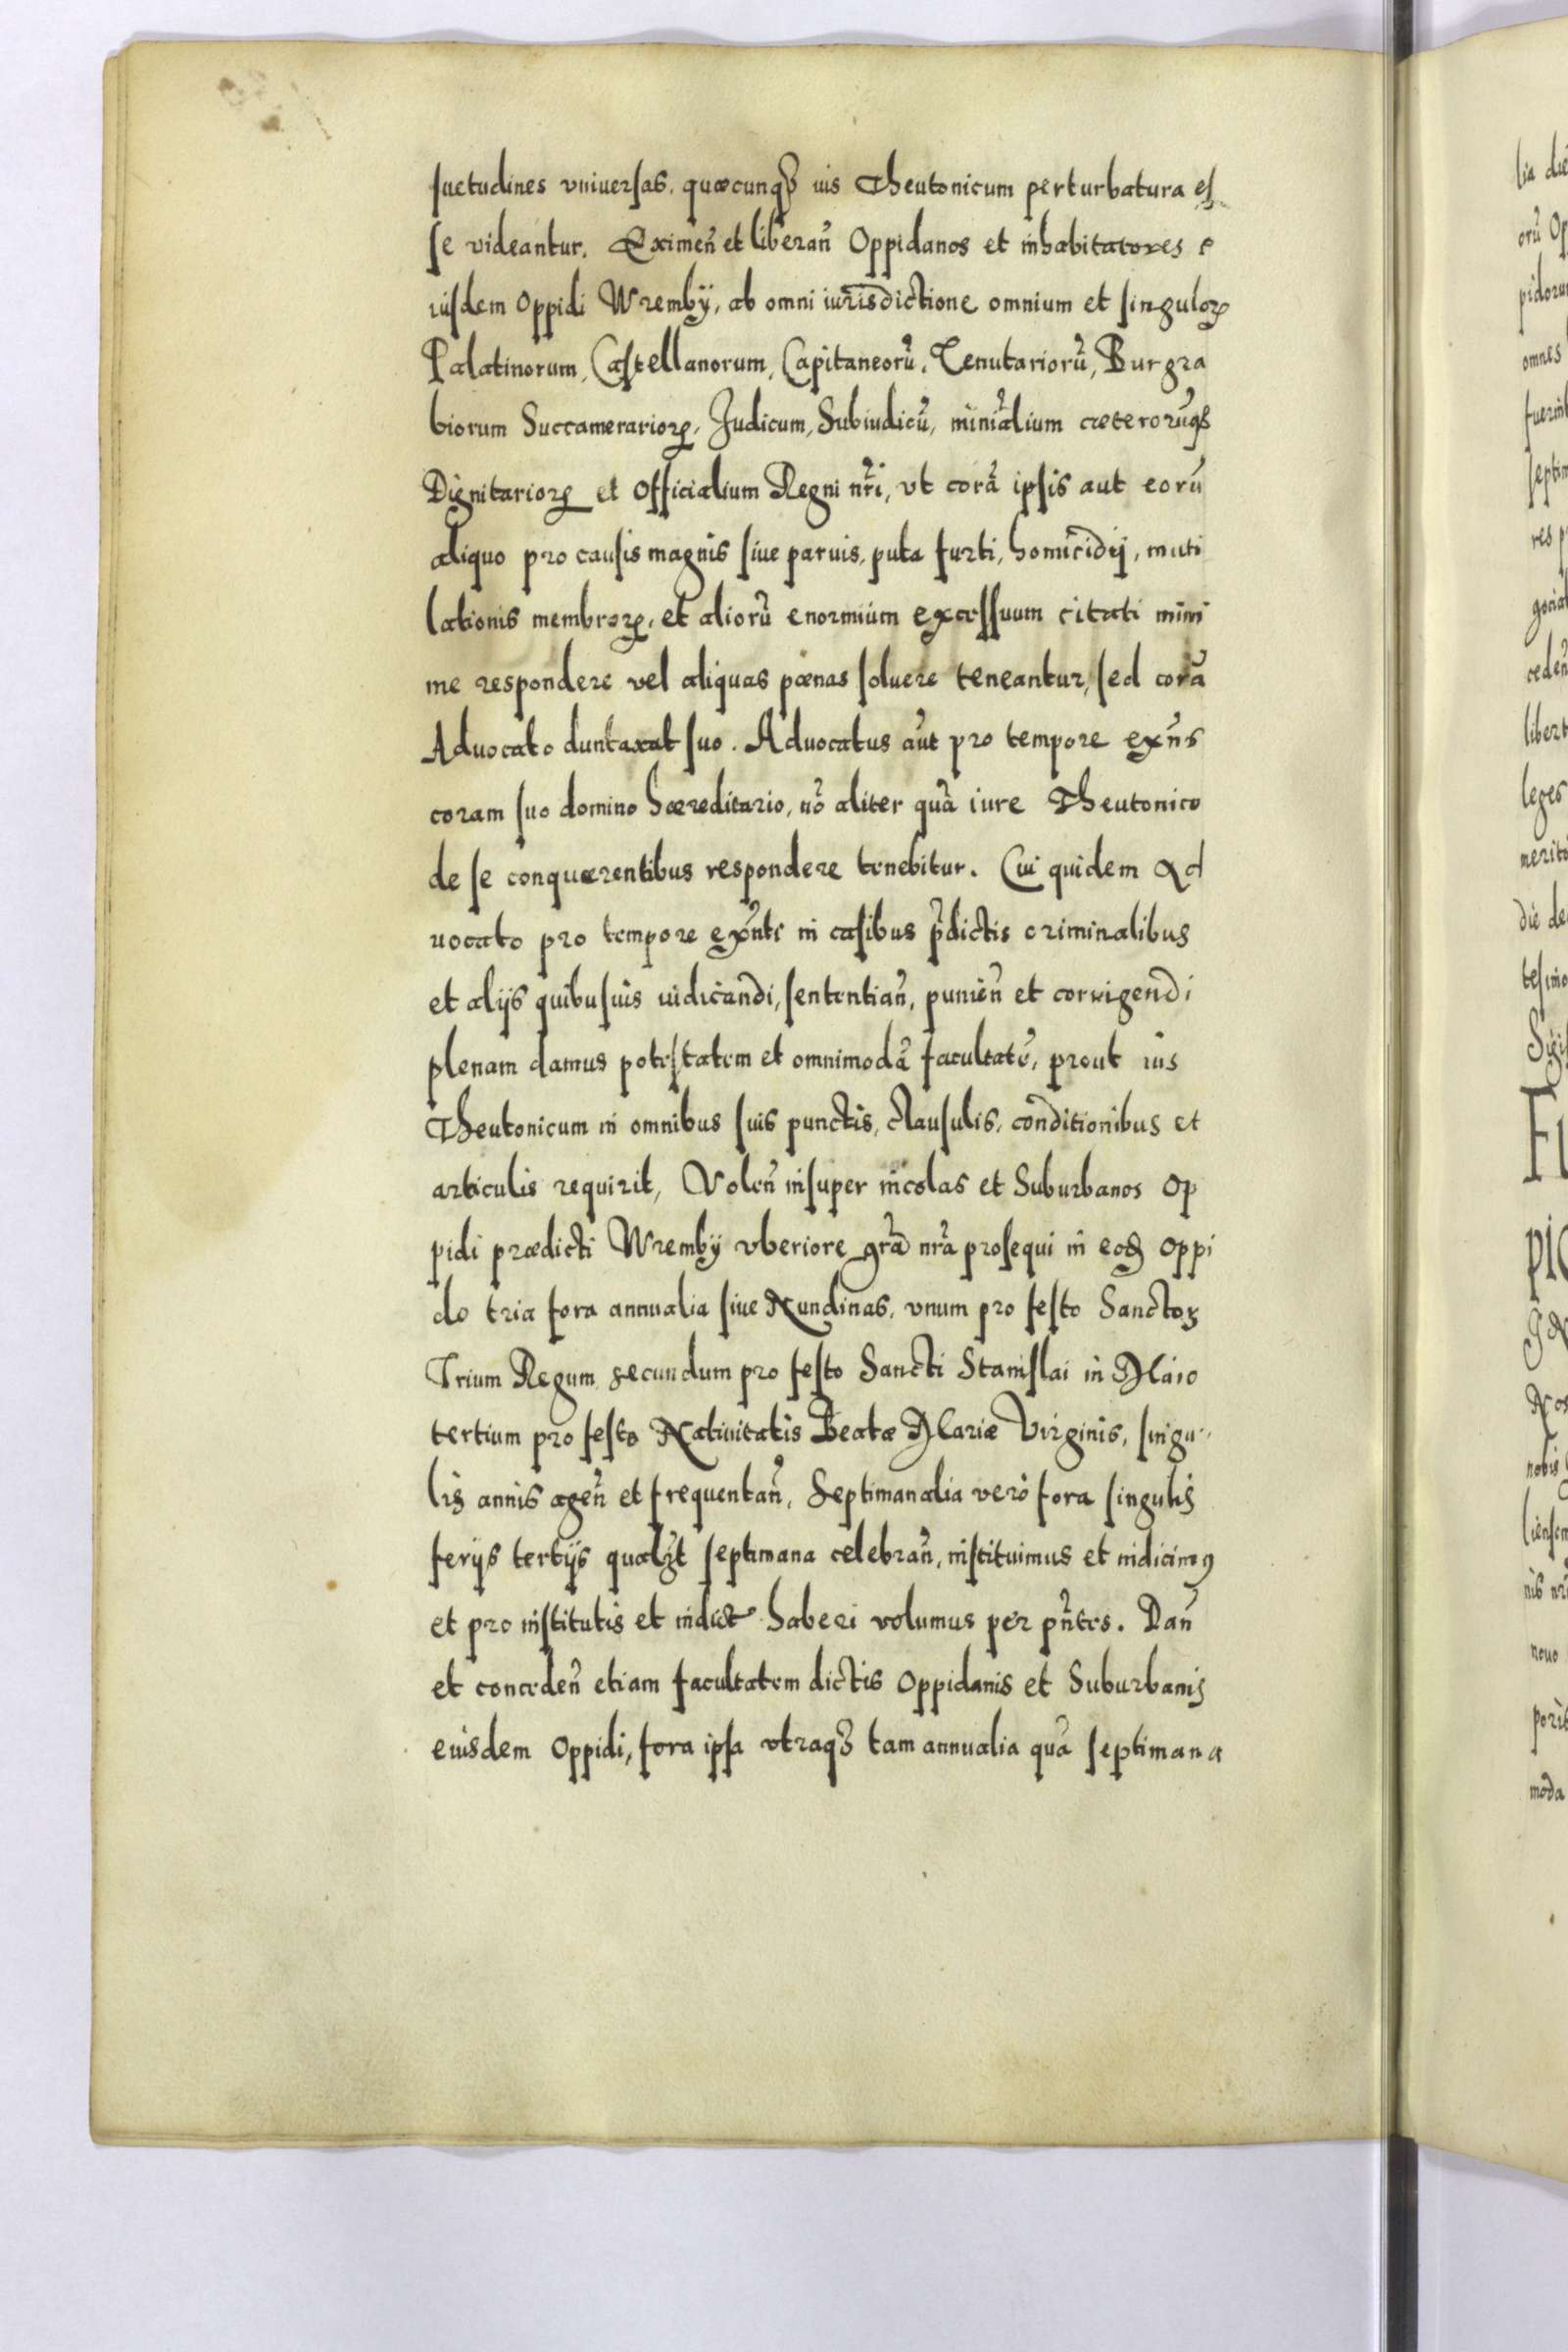 suetudines vniuersas, quæcunq̃ ius Theutonicum perturbatura es
se videantur. Eximeñ et liberañ Oppidanos et inhabitatores e
iusdem Oppidi Wremby, ab omni iurisdictione omnium et singuloꝝ
Palatinorum, Castellanorum, Capitaneorũ, Tenutariorũ, Burgra
biorum Succamerarioꝝ, Judicum, Subiudicũ, mini͠alium cæterorũqʒ
Dignitarioꝝ et Officialium Regni nr̃i, vt corã ipsis aut eorũ
aliquo pro causis magnis siue paruis, puta furti, homicidij, muti
lationis membroꝝ, et aliorũ enormium excessuum citati mini
me respondere vel aliquas pœnas soluere teneantur, sed corã
Aduocato duntaxat suo. Aduocatus aũt pro tempore exñs
coram suo domino hæreditario, nõ aliter quã iure Theutonico
de se conquærentibus respondere tenebitur. Cui quidem Ad
uocato pro tempore exñti in casibus p̃dictis criminalibus
et alijs quibusuis iudicandi, sententiañ, punieñ et corrigendi
plenam damus potestatem et omnimodã facultatẽ, prout ius
Theutonicum in omnibus suis punctis, clausulis, conditionibus et
articulis requirit, Voleñ insuper incolas et Suburbanos Op
pidi prædicti Wremby vberiore gr̃a nr̃a prosequi in eoꝗ Oppi
do tria fora annualia siue Nundinas, vnum pro festo Sanctoꝝ
Trium Regum secundum pro festo Sancti Stanislai in Maio
tertium pro festo Natiuitatis Beatæ Mariæ Virginis, singu-
lis annis ageñ et frequentañ, Septimanalia verò fora singulis
ferijs tertijs qual̃t septimana celebrañ, instituimus et indicimꝰ
et pro institutis et indict haberi volumus per pñtes. Dañ
et concedeñ etiam facultatem dictis Oppidanis et Suburbanis
eiusdem Oppidi, fora ipsa vtraqʒ tam annualia quã septimana